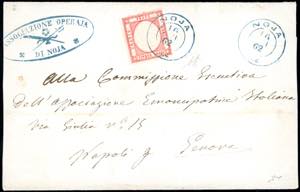 ASSOCIAZIONE OPERAJA
DI NOJA
NOJA
16
62
NOJA
16
62
Alla Commissione Esecutiva
dell'Associazione Emancipatrice Italiana
Via Giulia nº 15
Napoli p Genova